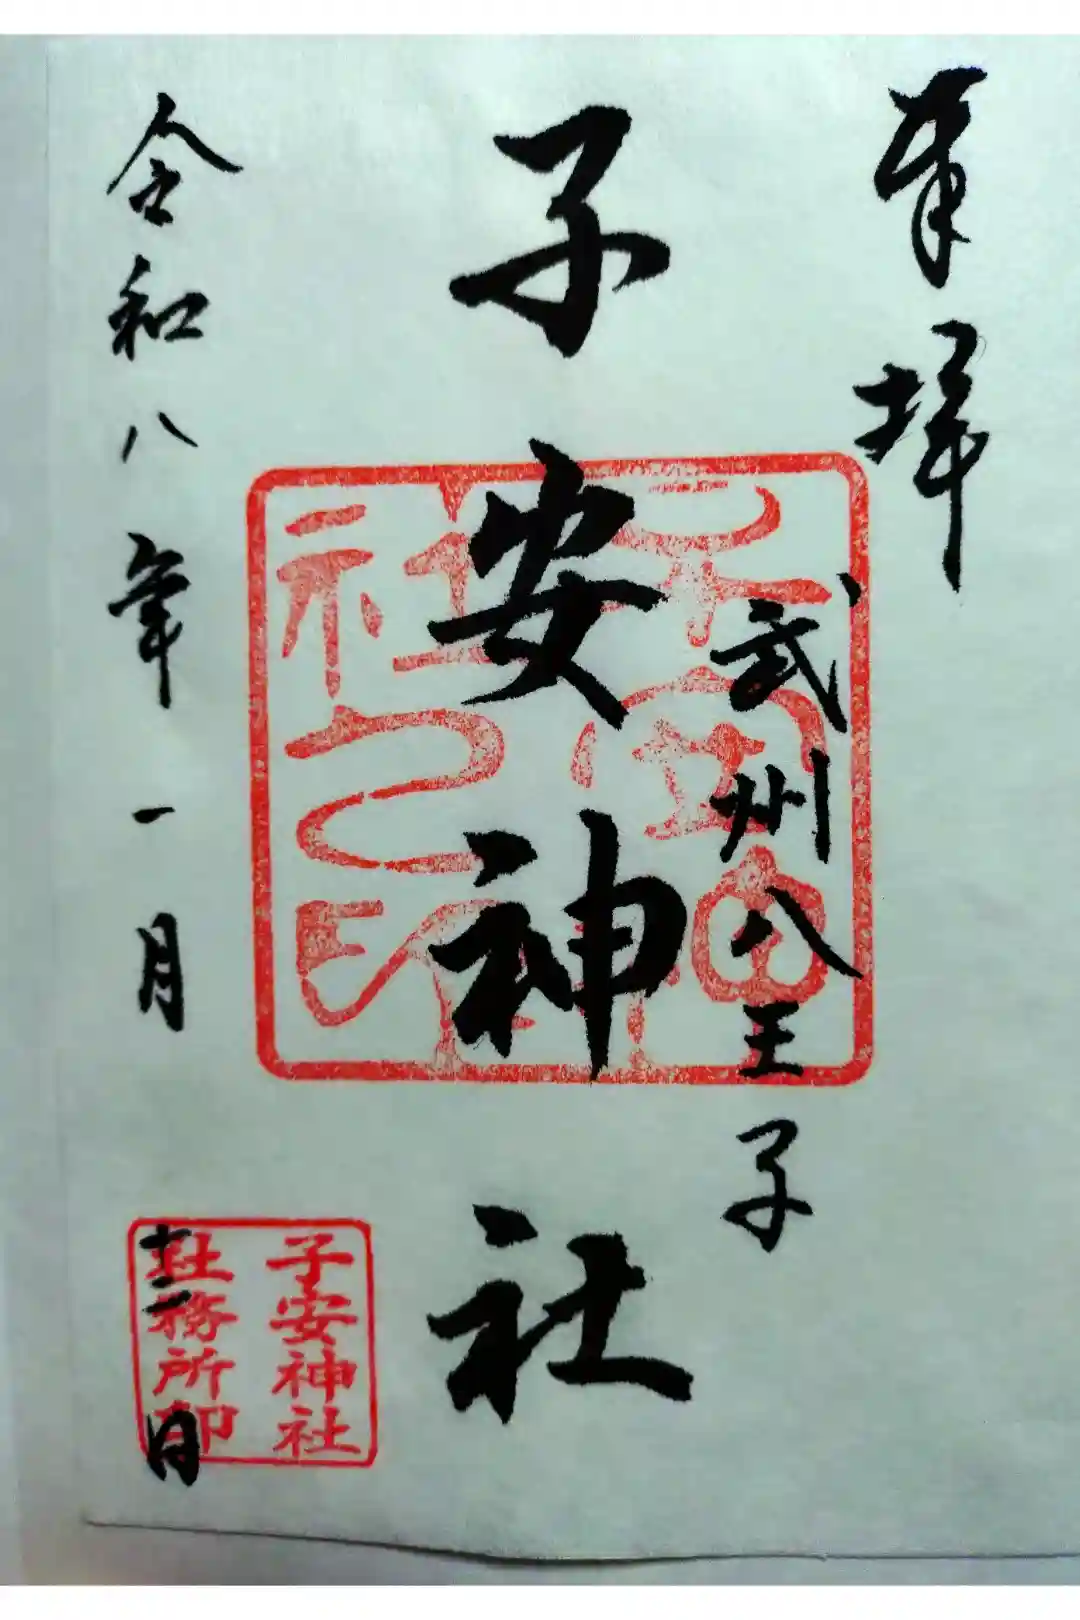 奉拝
武州八王子
子安神社
子安神
社之印
令和八年一月十二日
子安神社
社務所印